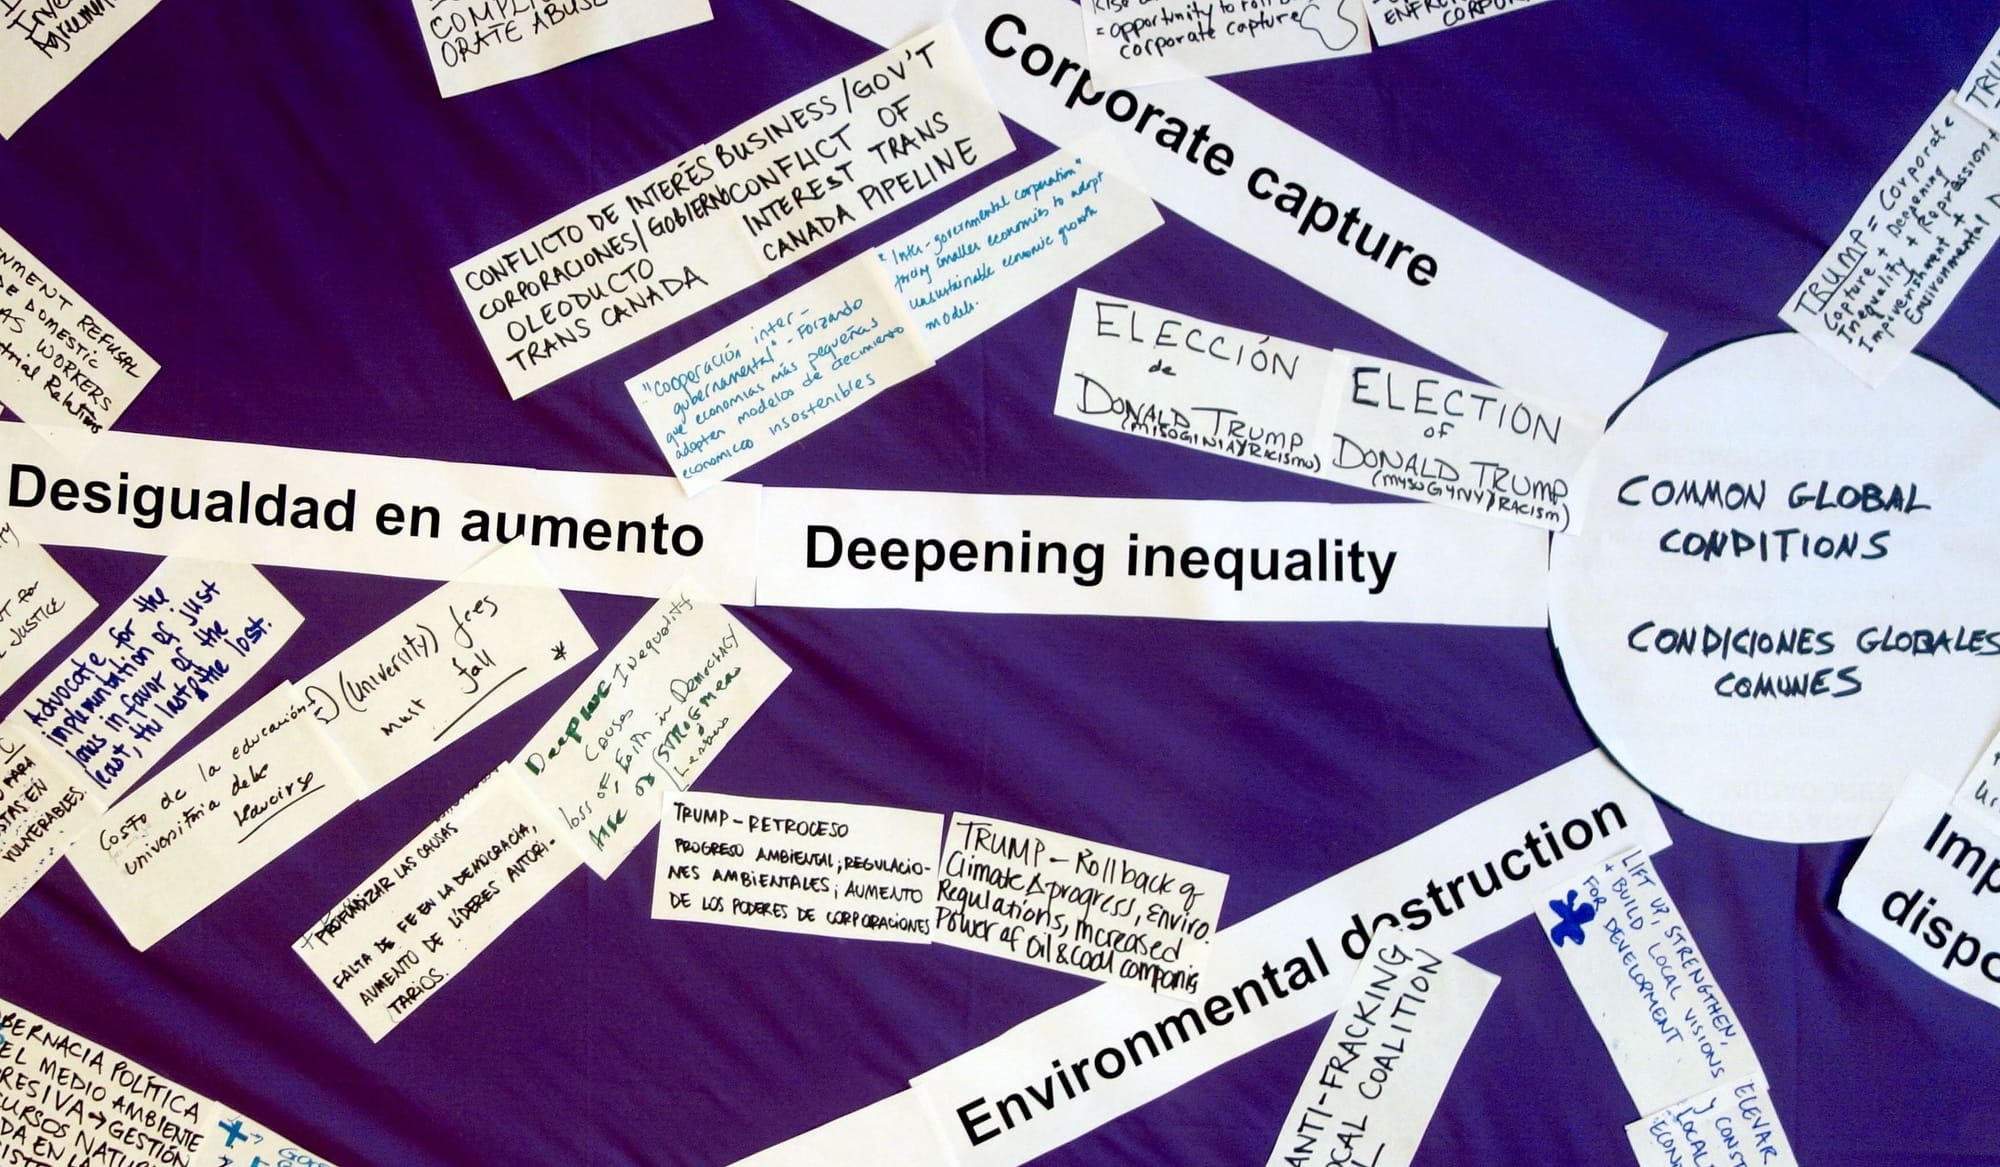 COMPLI
ORATE ABUSE
= opportunity to roll
corporate capture
Corporate capture
CONFLICTO DE INTERÉS
CORPORACIONES/GOBIERNO
OLEODUCTO
TRANS CANADA
BUSINESS/GOV'T
CONFLICT OF
INTEREST TRANS
CANADA PIPELINE
"Cooperación inter-
gubernamental" - Forzando
que economías más pequeñas
adopten modelos de crecimiento
economico insostenibles
"Inter-governmental corporation"
forcing smaller economies to adopt
unsustainable economic growth
models.
ELECCIÓN
de
DONALD TRUMP
(MISOGINIA Y RACISMO)
ELECTION
of
DONALD TRUMP
(MYSOGYNY/RACISM)
TRUMP = Corporate
Capture + Deepening
Inequality + Repression +
Impoverishment +
Environmental
NMENT REFUSAL
DE DOMESTIC
AS WORKERS
Desigualdad en aumento
Deepening inequality
COMMON GLOBAL
CONDITIONS
CONDICIONES GLOBALES
COMUNES
JUSTICE
Advocate for the
implementation of just
laws in favor of the
least, the last & the lost.
VULNERABLES.
Costo de la educación
universitaria debe
reducirse
(University) fees
must fall *
Deepening Inequality
causes
loss of faith in Democracy
+ PROFUNDIZAR LAS CAUSAS
FALTA DE FE EN LA DEMOCRACIA,
AUMENTO DE LÍDERES AUTORI-
TARIOS.
TRUMP - RETROCESO
PROGRESO AMBIENTAL; REGULACIO-
NES AMBIENTALES; AUMENTO
DE LOS PODERES DE CORPORACIONES
TRUMP - Rollback of
Climate Δ progress, Enviro.
Regulations, increased
Power of Oil & Coal companies
Environmental destruction
LIFT UP, STRENGTHEN,
+ BUILD LOCAL VISIONS
FOR DEVELOPMENT
ELEVAR
Y CONST
LOCAL
ECON
ANTI-FRACKING
OCAL COALITION
Imp
dispo
BERNACIA POLÍTICA
EL MEDIO AMBIENTE
RESIVA → GESTIÓN
CURSOS NATU
DA EN LA